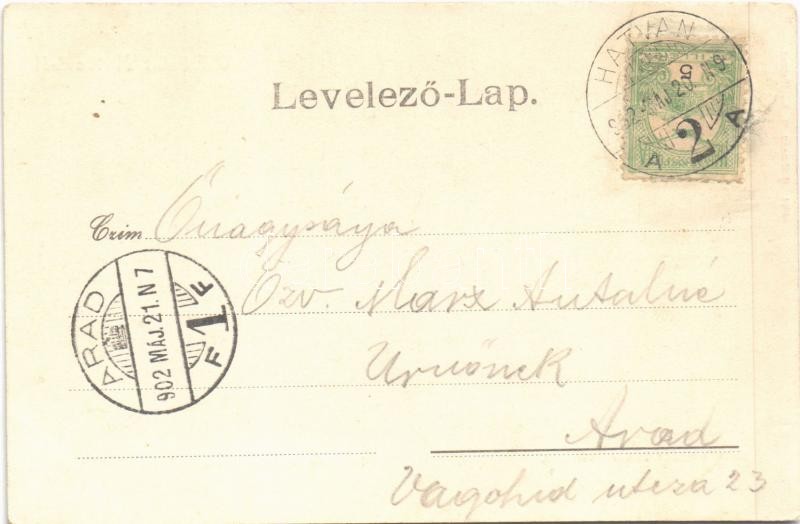 HATVAN
902 MÁJ. 20. N 9
A A
5
2
Levelező-Lap.
Czim Őnagysága
Özv. Marx Antalné
Úrnőnek
Arad
Vágóhid utcza 23
ARAD
902 MÁJ. 21. N 7
F 1 F